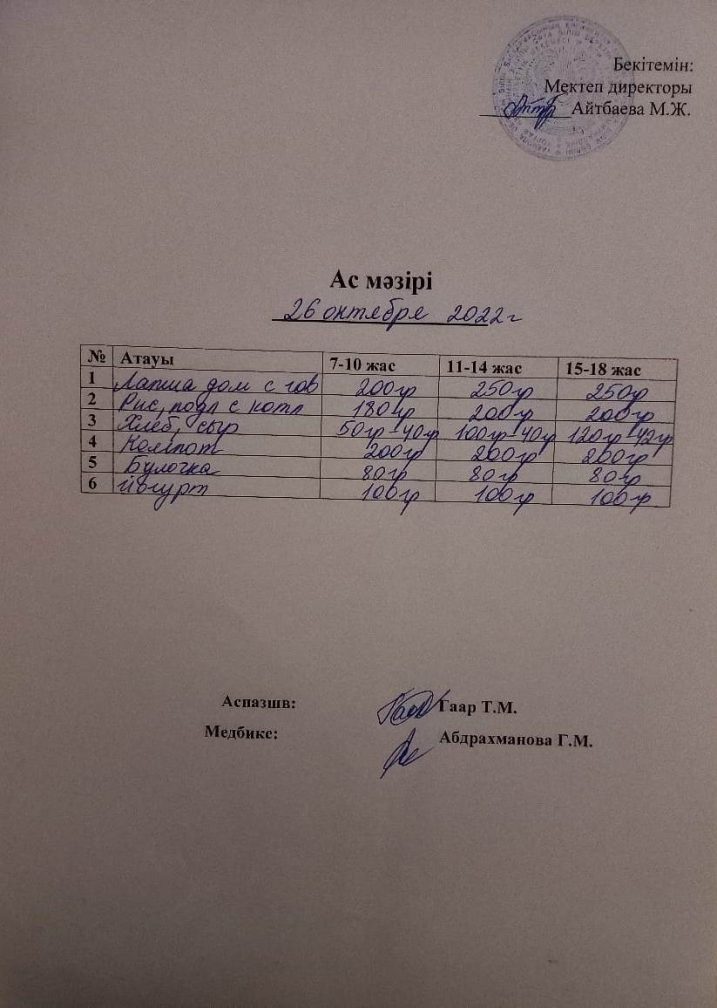 Бекітемін:
Мектеп директоры
Айтбаева М.Ж.
Ас мәзірі
26 октября 2022г
№ Атауы 7-10 жас 11-14 жас 15-18 жас
1 Лапша дом с гов 200гр 250гр 250гр
2 Рис, подл с котл 180гр 200гр 200гр
3 Хлеб, сыр 50гр-40гр 100гр-40гр 120гр-42гр
4 Компот 200гр 200гр 200гр
5 Булочка 80гр 80гр 80гр
6 йогурт 100гр 100гр 100гр
Аспазшв: Гаар Т.М.
Медбике: Абдрахманова Г.М.